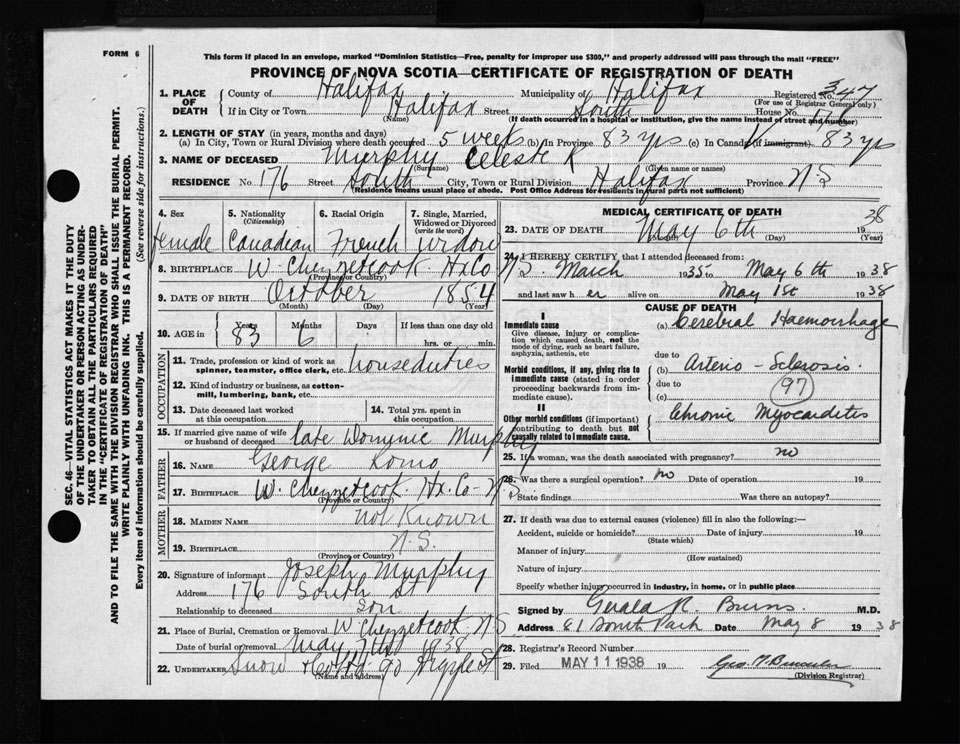 FORM 6
This form if placed in an envelope, marked "Dominion Statistics—Free, penalty for improper use $300," and properly addressed will pass through the mail "FREE"
PROVINCE OF NOVA SCOTIA—CERTIFICATE OF REGISTRATION OF DEATH
SEC. 46—VITAL STATISTICS ACT MAKES IT THE DUTY
OF THE UNDERTAKER OR PERSON ACTING AS UNDER-
TAKER TO OBTAIN ALL THE PARTICULARS REQUIRED
IN THE "CERTIFICATE OF REGISTRATION OF DEATH"
AND TO FILE THE SAME WITH THE DIVISION REGISTRAR WHO SHALL ISSUE THE BURIAL PERMIT.
WRITE PLAINLY WITH UNFADING INK. THIS IS A PERMANENT RECORD.
Every item of information should be carefully supplied. (See reverse side for instructions.)
1. PLACE OF DEATH County of Halifax Municipality of Halifax Registered No. 347
(For use of Registrar General only)
If in City or Town Halifax Street South House No.
(Name) (If death occurred in a hospital or institution, give the name instead of street and number)
2. LENGTH OF STAY (in years, months and days)
(a) In City, Town or Rural Division where death occurred 5 weeks (b) In Province 83 yrs (c) In Canada (if immigrant) 83 yrs
3. NAME OF DECEASED Murphy Celeste R
(Surname) (Given name or names)
RESIDENCE No. 176 Street South City, Town or Rural Division Halifax Province N S
(Residence means usual place of abode. Post Office Address for residents in rural parts not sufficient)
4. Sex female
5. Nationality (Citizenship) Canadian
6. Racial Origin French
7. Single, Married, Widowed or Divorced (write the word) widow
8. BIRTHPLACE W. Chezzetcook Hx Co N S.
(Province or Country)
9. DATE OF BIRTH October 1854
(Month) (Day) (Year)
10. AGE in Years 83 Months 6 Days If less than one day old hrs. or min.
OCCUPATION
11. Trade, profession or kind of work as spinner, teamster, office clerk, etc. houseduties
12. Kind of industry or business, as cotton-mill, lumbering, bank, etc.
13. Date deceased last worked at this occupation
14. Total yrs. spent in this occupation
15. If married give name of wife or husband of deceased late Dominic Murphy
FATHER
16. NAME George Romo
17. BIRTHPLACE W. Chezzetcook Hx. Co. N S
(Province or Country)
MOTHER
18. MAIDEN NAME not Known
19. BIRTHPLACE N. S.
(Province or Country)
20. Signature of informant Joseph Murphy
Address 176 South St
Relationship to deceased Son
21. Place of Burial, Cremation or Removal W. Chezzetcook N S
Date of burial or removal May 9th 1938
22. UNDERTAKER Snow & Co Ltd 90 Argyle St
(Name and address)
MEDICAL CERTIFICATE OF DEATH
23. DATE OF DEATH May 6th 1938
(Month) (Day) (Year)
24. I HEREBY CERTIFY that I attended deceased from
March 1935 to May 6th 1938
and last saw her alive on May 1st 1938
CAUSE OF DEATH
I
Immediate cause
Give disease, injury or complication which caused death, not the mode of dying, such as heart failure, asphyxia, asthenia, etc
(a) Cerebral Haemorrhage
due to
Morbid conditions, if any, giving rise to immediate cause (stated in order proceeding backwards from immediate cause).
(b) Arterio-Sclerosis.
due to (97)
(c)
II
Other morbid conditions (if important) contributing to death but not causally related to immediate cause.
Chronic Myocarditis
25. If a woman, was the death associated with pregnancy? no
26. Was there a surgical operation? no Date of operation 19
State findings Was there an autopsy?
27. If death was due to external causes (violence) fill in also the following:—
Accident, suicide or homicide? Date of injury 19
(State which)
Manner of injury
(How sustained)
Nature of injury
Specify whether injury occurred in industry, in home, or in public place
Signed by Gerald R. Burns. M.D.
Address 81 South Park Date May 8 1938
28. Registrar's Record Number
29. Filed MAY 11 1938 19
(Division Registrar)